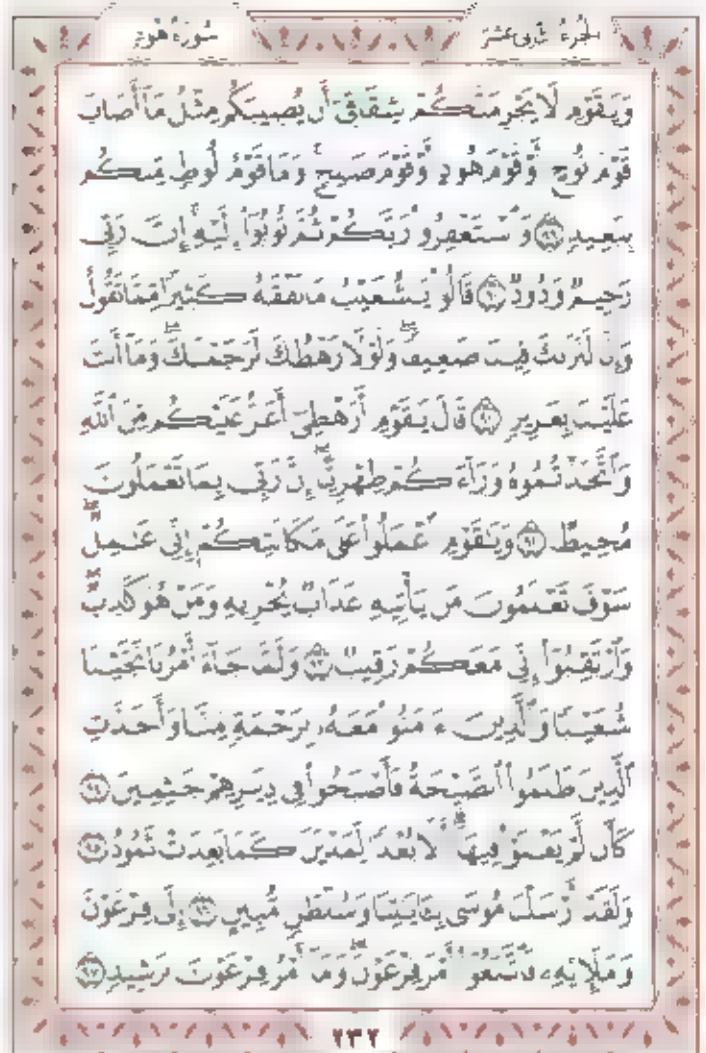 الجزء الثاني عشر
سورة هود
وَيَٰقَوْمِ لَا يَجْرِمَنَّكُمْ شِقَاقِىٓ أَن يُصِيبَكُم مِّثْلُ مَآ أَصَابَ
قَوْمَ نُوحٍ أَوْ قَوْمَ هُودٍ أَوْ قَوْمَ صَٰلِحٍ ۚ وَمَا قَوْمُ لُوطٍ مِّنكُم
بِبَعِيدٍ ﴿٨٩﴾ وَٱسْتَغْفِرُوا۟ رَبَّكُمْ ثُمَّ تُوبُوٓا۟ إِلَيْهِ ۚ إِنَّ رَبِّى
رَحِيمٌ وَدُودٌ ﴿٩٠﴾ قَالُوا۟ يَٰشُعَيْبُ مَا نَفْقَهُ كَثِيرًا مِّمَّا تَقُولُ
وَإِنَّا لَنَرَىٰكَ فِينَا ضَعِيفًا ۖ وَلَوْلَا رَهْطُكَ لَرَجَمْنَٰكَ ۖ وَمَآ أَنتَ
عَلَيْنَا بِعَزِيزٍ ﴿٩١﴾ قَالَ يَٰقَوْمِ أَرَهْطِىٓ أَعَزُّ عَلَيْكُم مِّنَ ٱللَّهِ
وَٱتَّخَذْتُمُوهُ وَرَآءَكُمْ ظِهْرِيًّا ۖ إِنَّ رَبِّى بِمَا تَعْمَلُونَ
مُحِيطٌ ﴿٩٢﴾ وَيَٰقَوْمِ ٱعْمَلُوا۟ عَلَىٰ مَكَانَتِكُمْ إِنِّى عَٰمِلٌ ۖ
سَوْفَ تَعْلَمُونَ مَن يَأْتِيهِ عَذَابٌ يُخْزِيهِ وَمَنْ هُوَ كَٰذِبٌ ۖ
وَٱرْتَقِبُوٓا۟ إِنِّى مَعَكُمْ رَقِيبٌ ﴿٩٣﴾ وَلَمَّا جَآءَ أَمْرُنَا نَجَّيْنَا
شُعَيْبًا وَٱلَّذِينَ ءَامَنُوا۟ مَعَهُۥ بِرَحْمَةٍ مِّنَّا وَأَخَذَتِ
ٱلَّذِينَ ظَلَمُوا۟ ٱلصَّيْحَةُ فَأَصْبَحُوا۟ فِى دِيَٰرِهِمْ جَٰثِمِينَ ﴿٩٤﴾
كَأَن لَّمْ يَغْنَوْا۟ فِيهَآ ۗ أَلَا بُعْدًا لِّمَدْيَنَ كَمَا بَعِدَتْ ثَمُودُ ﴿٩٥﴾
وَلَقَدْ أَرْسَلْنَا مُوسَىٰ بِـَٔايَٰتِنَا وَسُلْطَٰنٍ مُّبِينٍ ﴿٩٦﴾ إِلَىٰ فِرْعَوْنَ
وَمَلَإِي۟هِۦ فَٱتَّبَعُوٓا۟ أَمْرَ فِرْعَوْنَ ۖ وَمَآ أَمْرُ فِرْعَوْنَ بِرَشِيدٍ ﴿٩٧﴾
٢٣٢